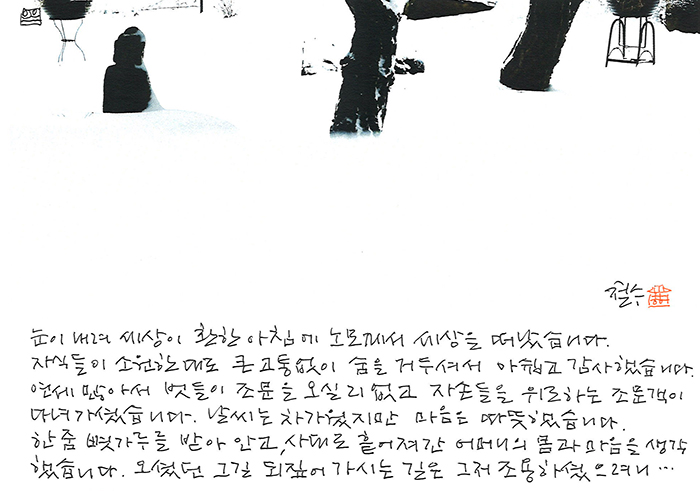 철수
눈이 내려 세상이 환한 아침에 노모께서 세상을 떠났습니다.
자식들이 소원한대로 큰 고통없이 숨을 거두셔서 아쉽고 감사했습니다.
연세 많아서 벗들이 조문을 오실리 없고 자손들을 위로하는 조문객이
다녀가셨습니다. 날씨는 차가웠지만 마음은 따뜻했습니다.
한 줌 뼛가루를 받아 안고, 사대로 흩어져간 어머니의 몸과 마음을 생각
했습니다. 오셨던 그길 되짚어 가시는 길은 그저 조용하셨으려니…